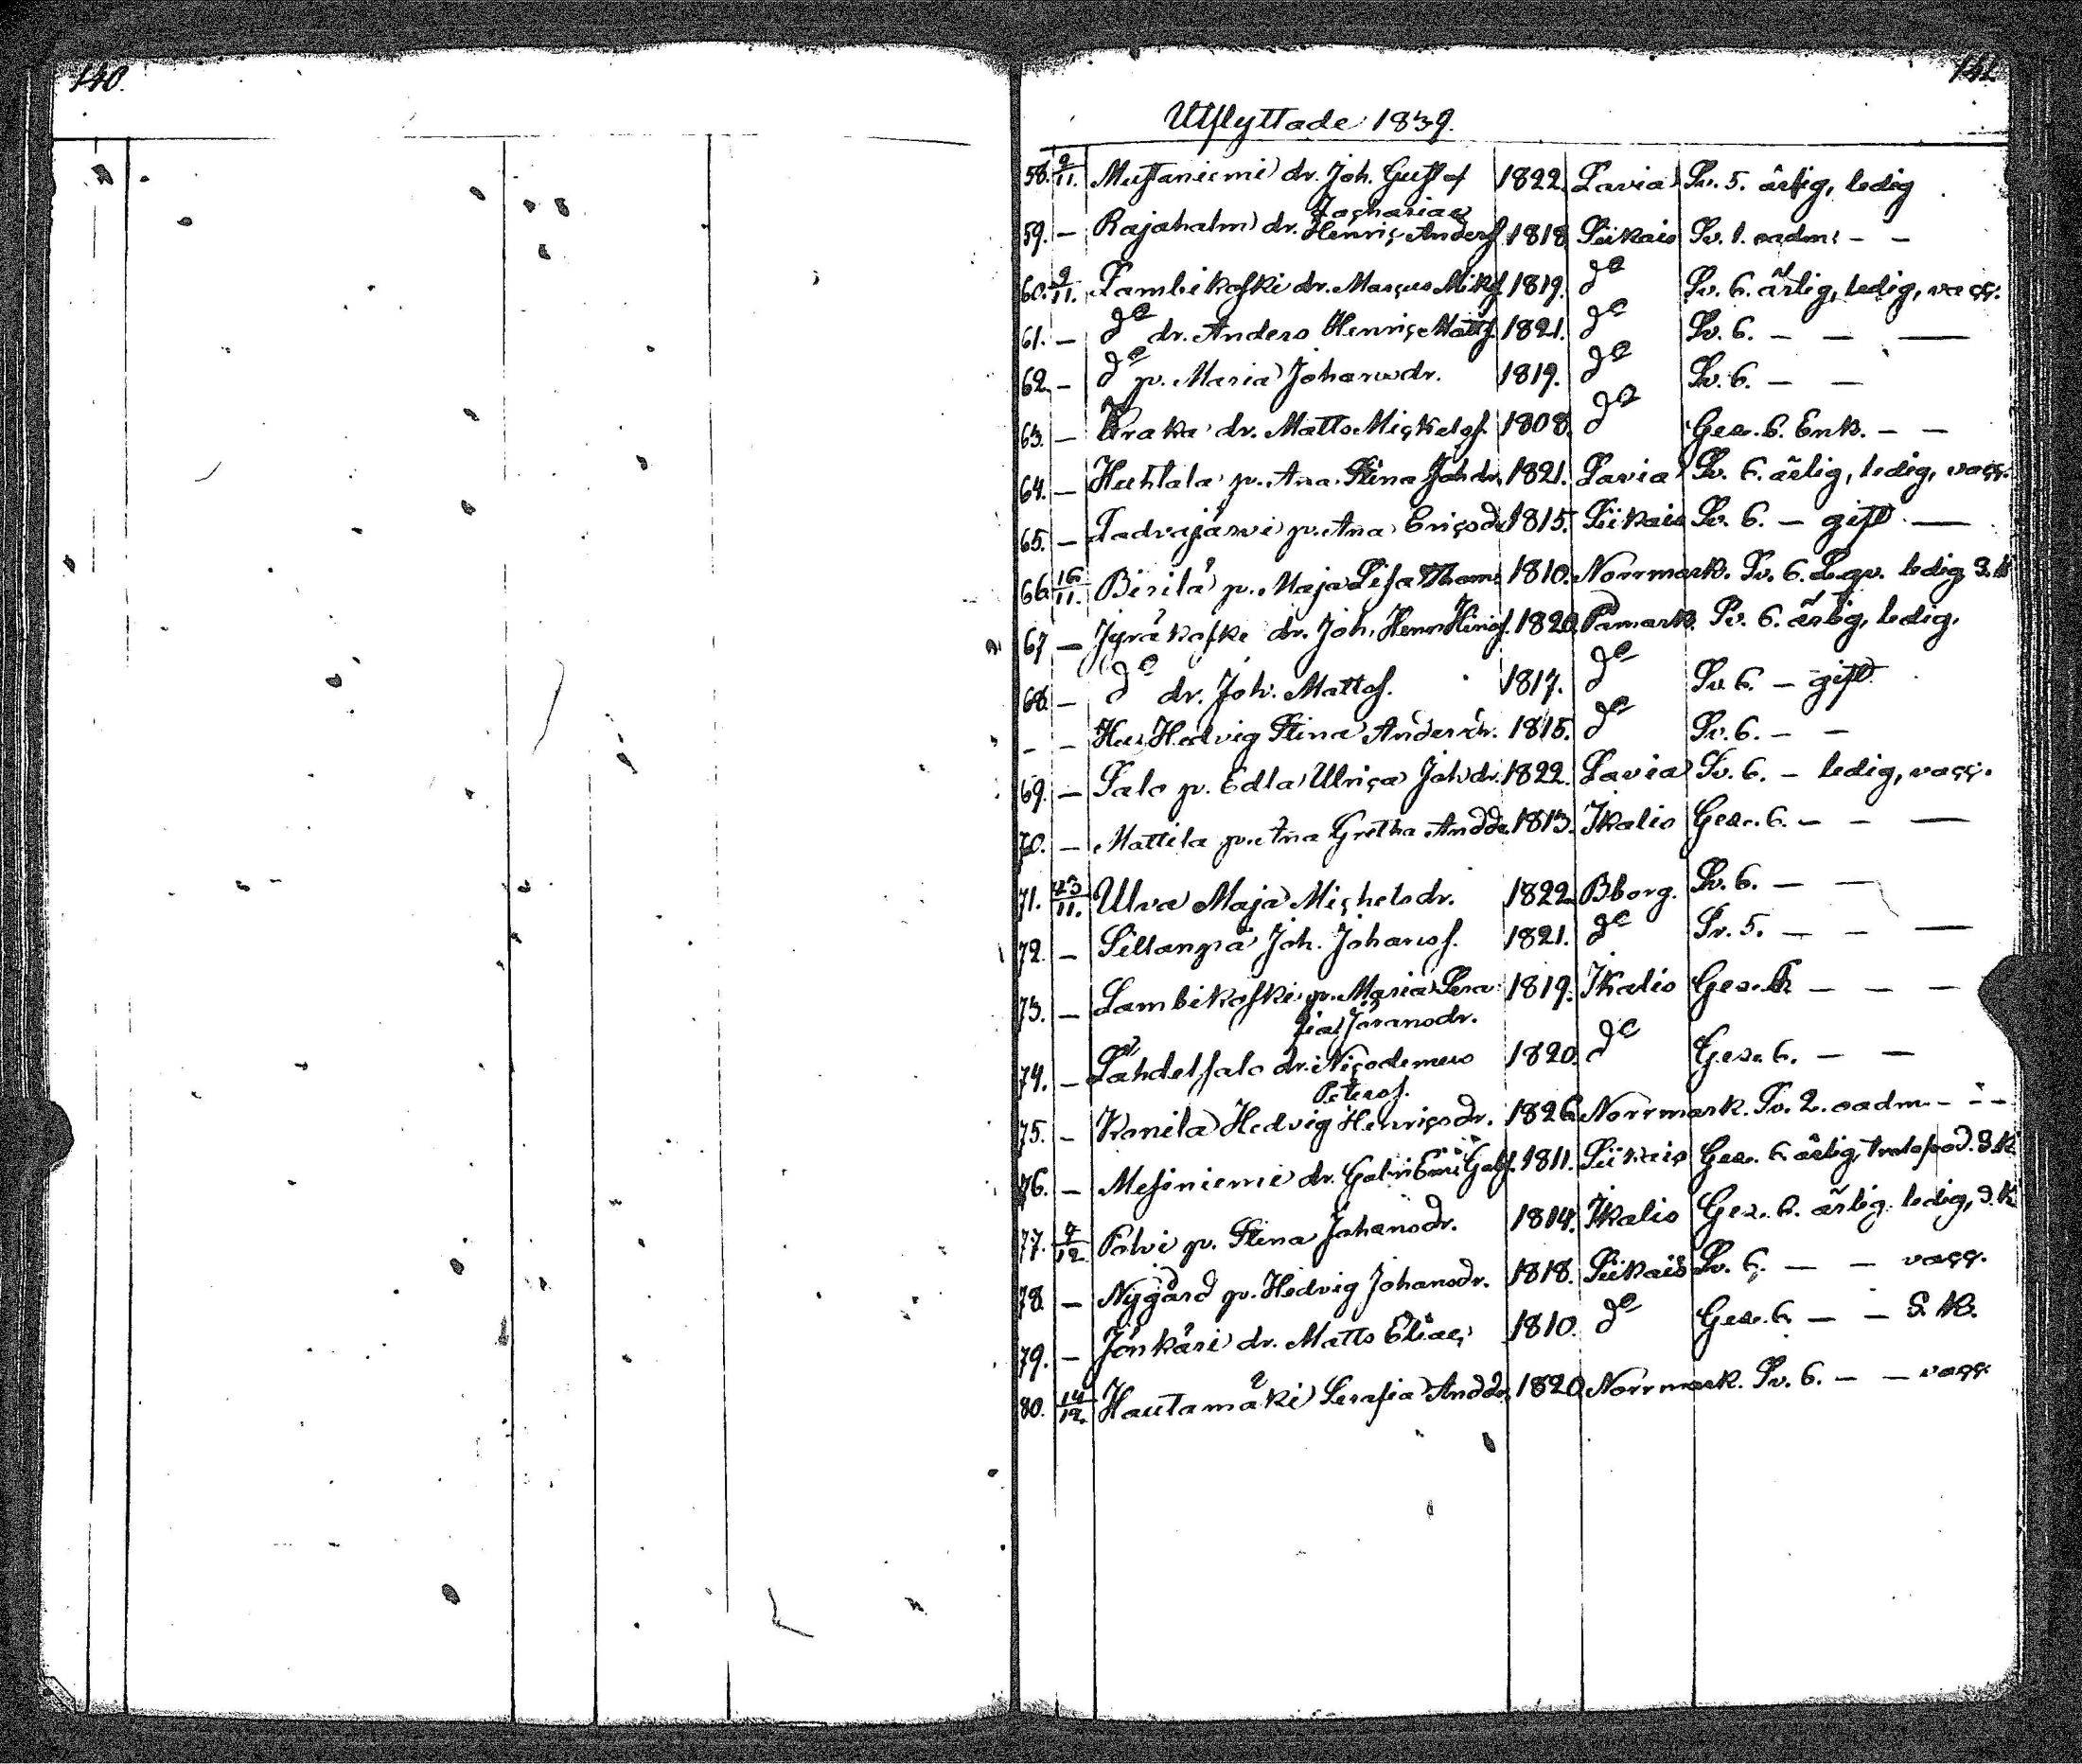 140.
141.
Utflyttade 1839.
58. 9/11. Mustaniemi dr. Joh. Gust. 1822. Lavia Sv. 5. ärlig, ledig
Zachariae
59. — Rajahalm dr. Henric Andersf. 1818 Siikais Sv. 1. oadm: — —
60. 9/11. Lambikoski dr. Marcus Mikf. 1819. do Sv. 6. ärlig, ledig, vacc.
61. — do dr. Anders Henric Mattsf. 1821. do Sv. 6. — — —
62. — do p. Maria Johansdr. 1819. do Sv. 6. — —
63. — dr. Matts Mickelsf. 1808. do Ges. 6. Enk. — —
64. — Huhtala p. Ana Stina Johdr. 1821. Lavia Sv. 6. ärlig, ledig, vacc.
65. — p. Ana Ericsdr 1815. Siikais Sv. 6. — gift —
66. 16/11. Birilä p. Maja Lisa Thom. 1810. Norrmark. Sv. 6. ledig S.k
67 — Jyräkoski dr. Joh. Henr. 1820. Påmark. Sv. 6. ärlig, ledig.
68. — do dr. Joh. Mattsf. 1817. do Sv. 6. — gift
— — Hu. Hedvig Stina Andersdr. 1815. do Sv. 6. — —
69. — Salo p. Edla Ulrica Johdr. 1822. Lavia Sv. 6. — ledig, vacc.
70. — Mattila p. Ana Gretha Anddr. 1813. Ikalis Ges. 6. — — —
71. 23/11. Ulva Maja Michelsdr. 1822. Bborg. Sv. 6. — —
72. — Siltanpä Joh. Johansf. 1821. do Sv. 5. — — —
73. — Lambikoski p. Maria Sera 1819. Ikalis Ges. 6 — — —
fia Göransdr.
74. — Lähdesalo dr. Nicodemus 1820. do Ges. 6. — —
Petersf.
75. — Konila Hedvig Henricsdr. 1826 Norrmark. Sv. 2. oadm — — —
76. — Mesiniemi dr. Gabri Gabf. 1811. Siikais Ges. 6 ärlig, S.k
77. 7/12 Polvi p. Stina Johansdr. 1814. Ikalis Ges. 6. ärlig. ledig, S.k
78. — Nygård p. Hedvig Johansdr. 1818. Siikais Sv. 6. — — vacc.
79. — Jönkäri dr. Matts Eliae 1810. do Ges. 6. — — S.k.
80. 14/12. Hautamäki Serafia Anddr. 1820 Norrmark. Sv. 6. — — vacc.